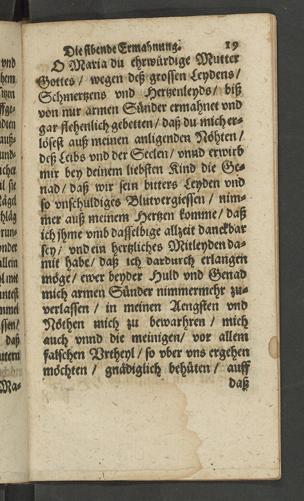 Die sibende Ermahnung. 19
O Maria du ehrwürdige Mutter
Gottes / wegen deß grossen Leydens /
Schmertzens vnd Hertzenleyds / biß
von mir armen Sünder ermahnet vnd
gar flehenlich gebetten / daß du mich er-
lösest auß meinen anligenden Nöhten /
deß Leibs vnd der Seelen / vnnd erwirb
mir bey deinem liebsten Kind die Ge-
nad / daß mir sein bitters Leyden vnd
so vnschuldiges Blutvergiessen / nim-
mer auß meinem Hertzen komme / daß
ich jhme vmb dasselbige allzeit danckbar
sey / vnd ein hertzliches Mitleyden da-
mit habe / daß ich dardurch erlangen
möge / ewer beyder Huld vnd Genad
mich armen Sünder nimmermehr zu-
verlassen / in meinen Aengsten vnd
Nöthen mich zu bewahren / mich
auch vnnd die meinigen / vor allem
falschen Vrtheyl / so vber vns ergehen
möchten / gnädiglich behüten / auff
daß